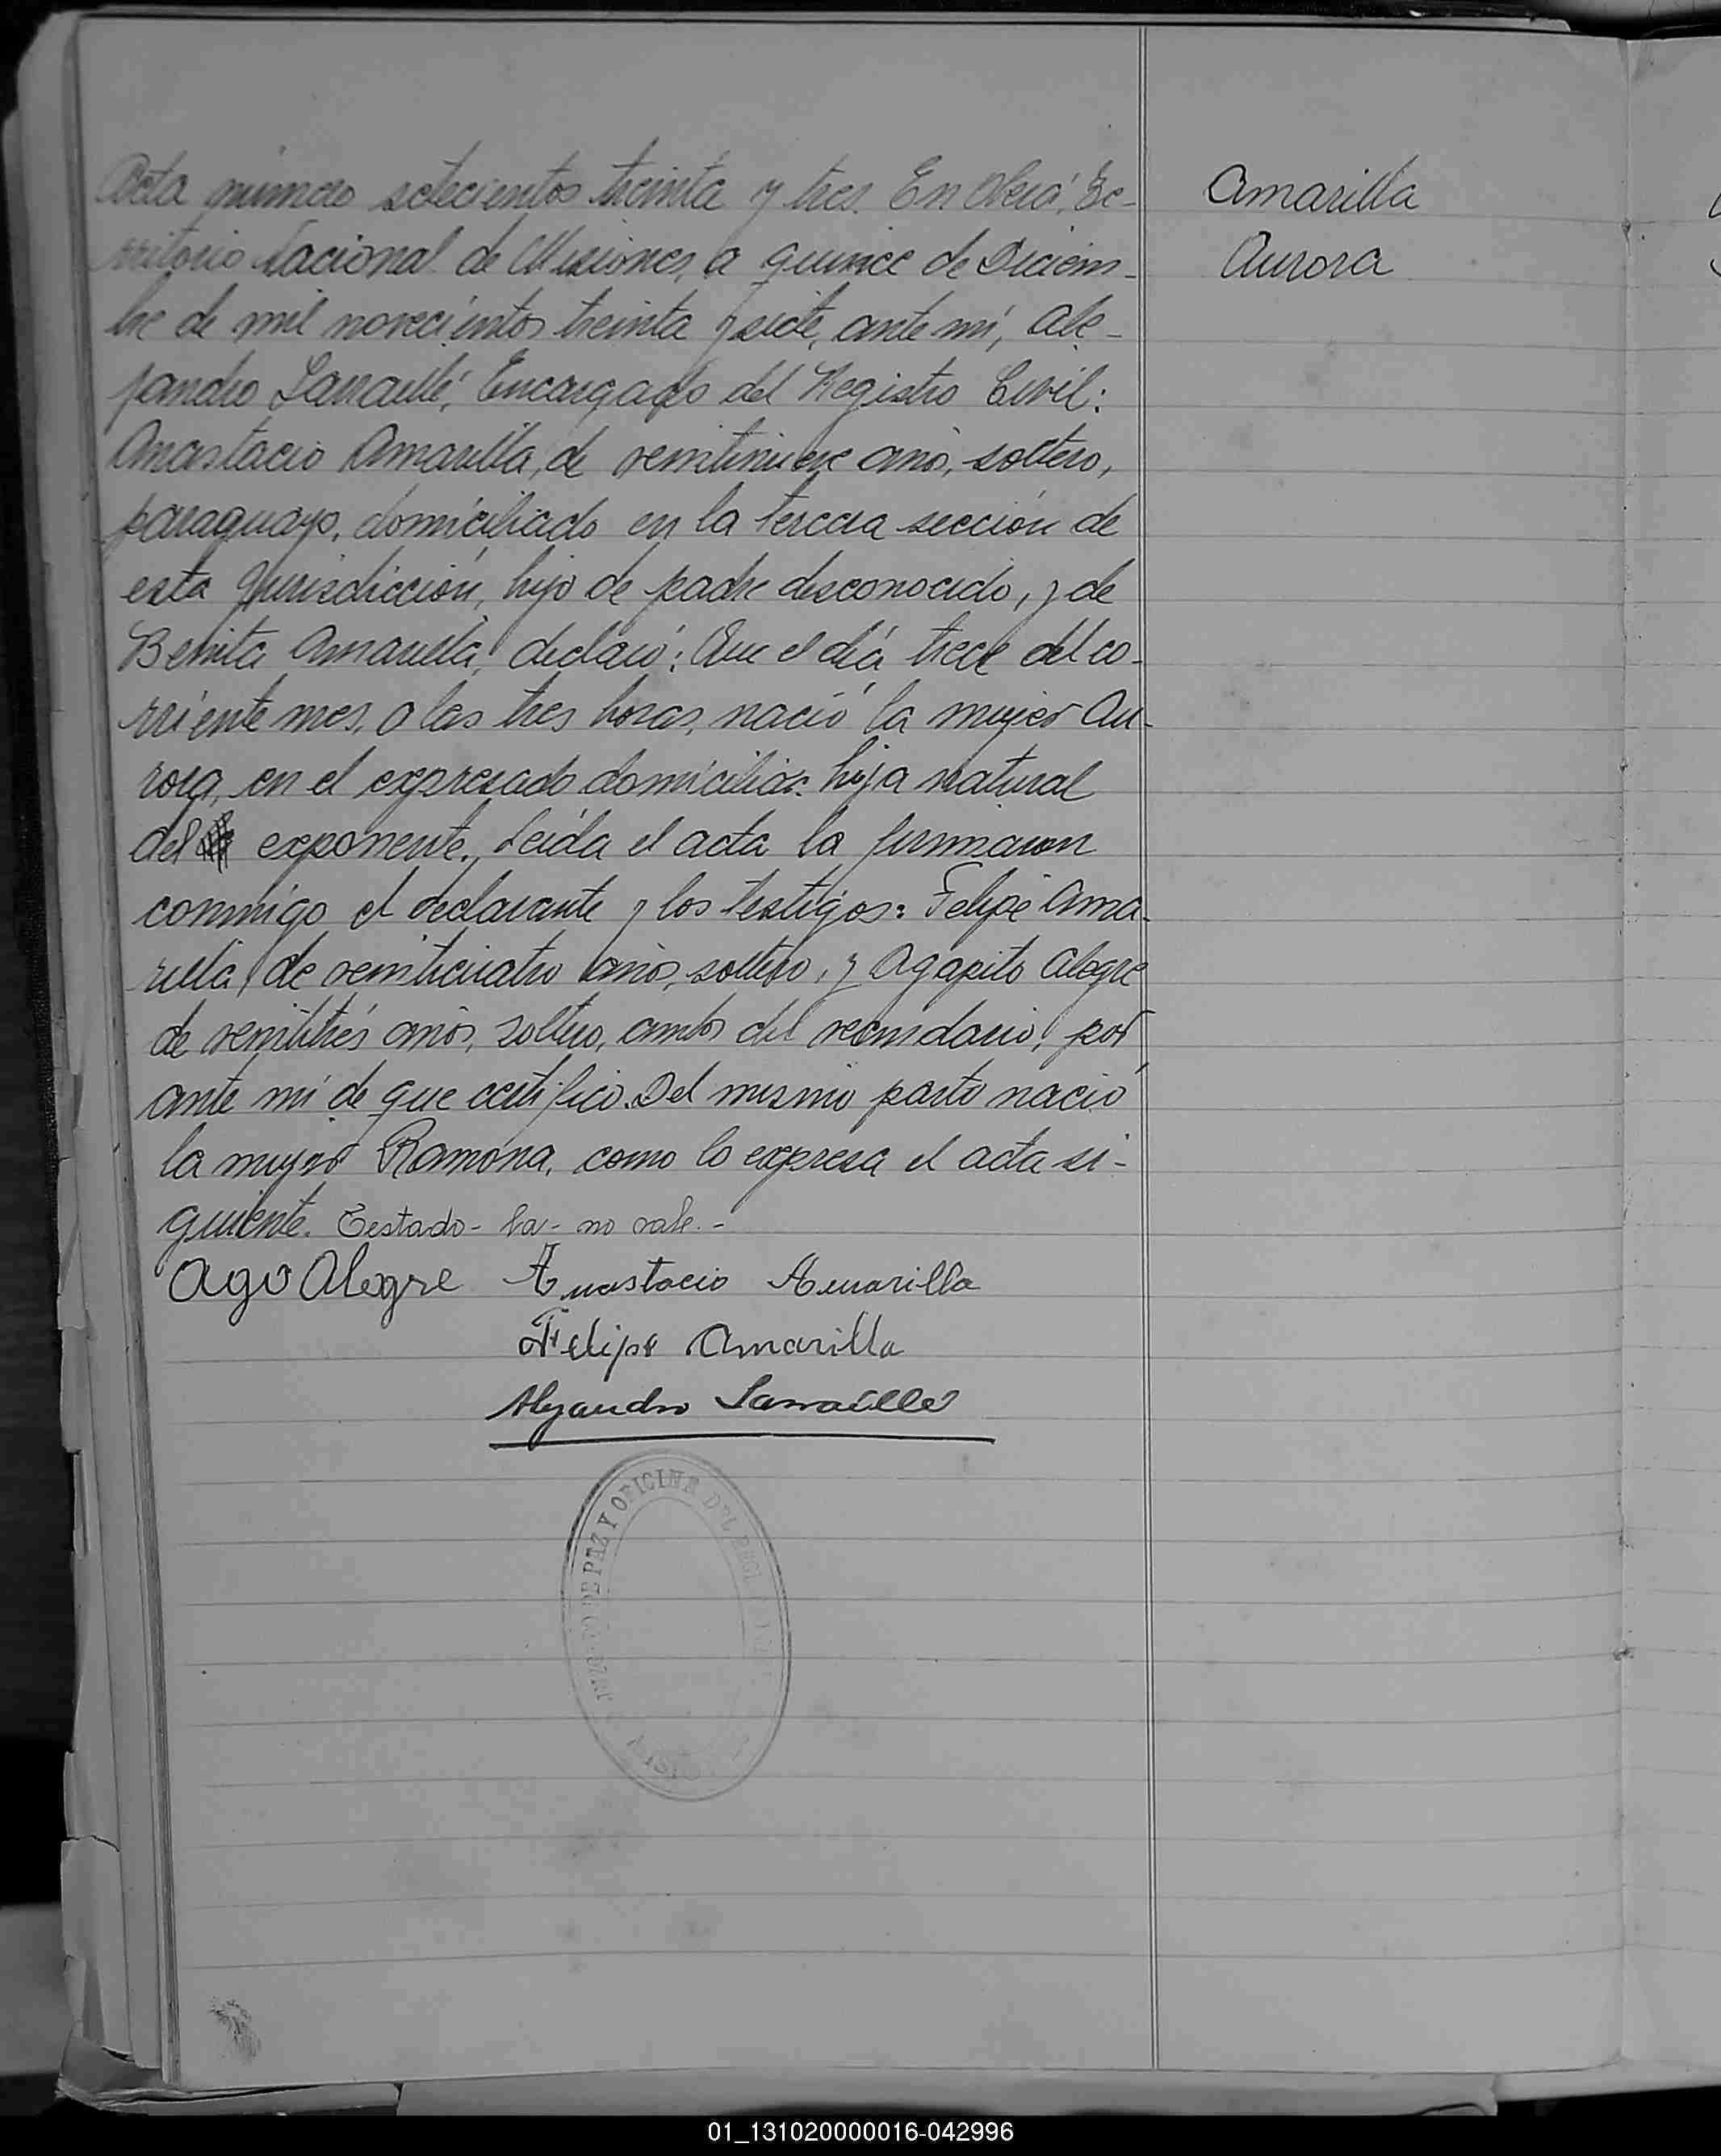 Acta número setecientos treinta y tres. En Oberá, Te-
rritorio Nacional de Misiones, a quince de Diciem-
bre de mil novecientos treinta y siete, ante mí, Ale-
jandro Larraillé, Encargado del Registro Civil:
Anastacio Amarilla, de veintinueve años, soltero,
paraguayo, domiciliado en la tercera sección de
esta Jurisdicción, hijo de padre desconocido, y de
Benita Amarilla, declaró: Que el día trece del co-
rriente mes, a las tres horas, nació la mujer Au-
rora, en el expresado domicilio: hija natural
del exponente. Leída el acta la firmaron
conmigo el declarante y los testigos: Felipe Ama-
rilla, de veinticuatro años, soltero, y Agapito Alegre
de veintitrés años, soltero, ambos del vecindario, por
ante mí de que certifico. Del mismo parto nació
la mujer Ramona, como lo expresa el acta si-
guiente. Testado - la - no vale. -
Ago Alegre Anastacio Amarilla
Felipe Amarilla
Alejandro Larraillé
DE PAZ Y OFICINA DEL REGI
Amarilla
Aurora
01_131020000016-042996